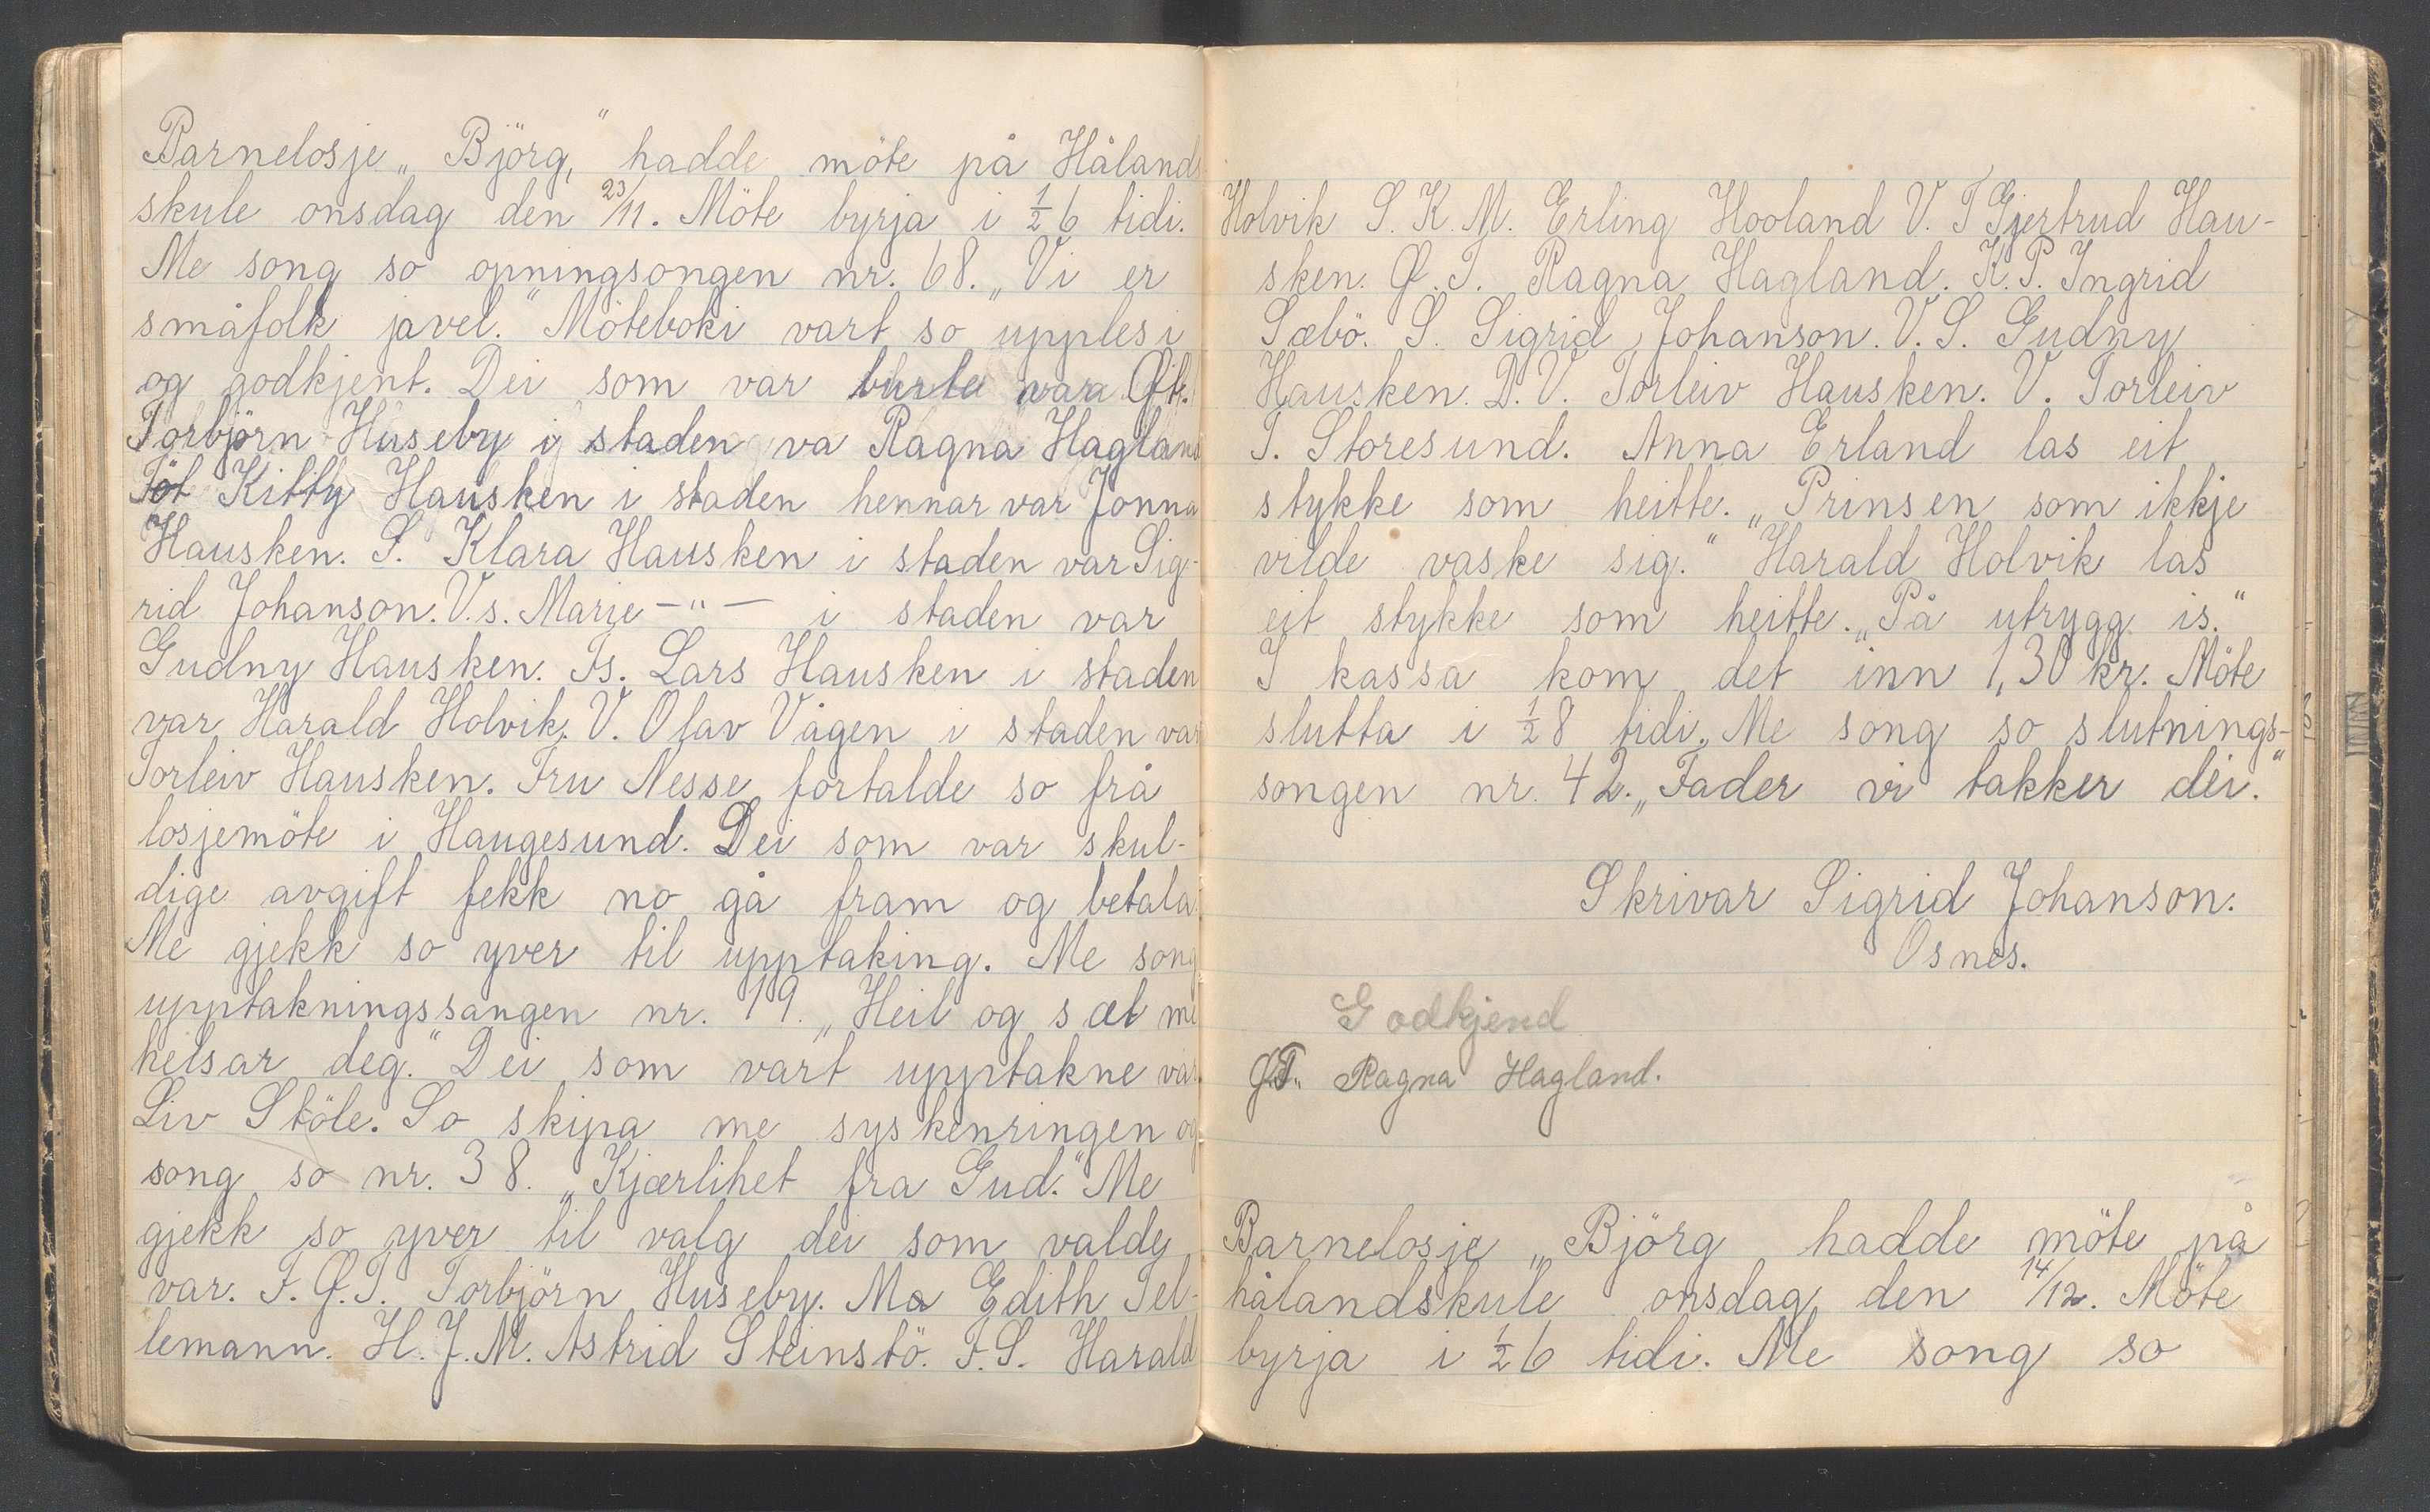 Barnelosje „Björg,“ hadde möte på Hålands
skule onsdag den 23/11. Möte byrja i ½ 6 tidi.
Me song so opningsongen nr. 68. „Vi er
småfolk javel.“ Möteboki vart so upplesi
og godkjent. Dei som var burte var
Torbjörn Huseby i staden va Ragna Hagland
Kitty Hausken i staden hennar var Jonna
Hausken. S. Klara Hausken i staden var Sig-
rid Johanson. V.s. Marje -"- i staden var
Gudny Hausken. Fs. Lars Hausken i staden
var Harald Holvik. V. Olav Vågen i staden var
Torleiv Hausken. Fru Nesse fortalde so frå
losjemöte i Haugesund. Dei som var skul-
dige avgift fekk no gå fram og betala.
Me gjekk so yver til upptaking. Me song
upptakningssangen nr. 19. „Heil og sæl me
helsar deg.“ Dei som vart upptakne var
Liv Stöle. So skipa me syskenringen og
song so nr. 38. „Kjærlihet fra Gud.“ Me
gjekk so yver til valg dei som valde
var. F. G.T. Torbjörn Huseby. Ma Edith Tel-
lemann. H. J. M. Astrid Steinstö. F.S. Harald
Holvik S. K. M. Erling Hooland V. T Gjertrud Hau-
sken. G.T. Ragna Hagland. K.P. Ingrid
Sæbö. S. Sigrid Johanson. V.S. Gudny
Hausken. D.V. Torleiv Hausken. V. Torleiv
T. Storesund. Anna Erland las eit
stykke som heitte. „Prinsen som ikkje
vilde vaske sig.“ Harald Holvik las
eit stykke som heitte. „På utrygg is.“
I kassa kom det inn 1,30 kr. Möte
slutta i ½ 8 tidi. Me song so slutnings-
songen nr. 42. „Fader vi takker dei.“
Skrivar Sigrid Johanson.
Osnes.
Godkjend
GT. Ragna Hagland.
Barnelosje „Björg hadde möte på
hålandskule onsdag den 14/12. Möte
byrja i ½ 6 tidi. Me song so